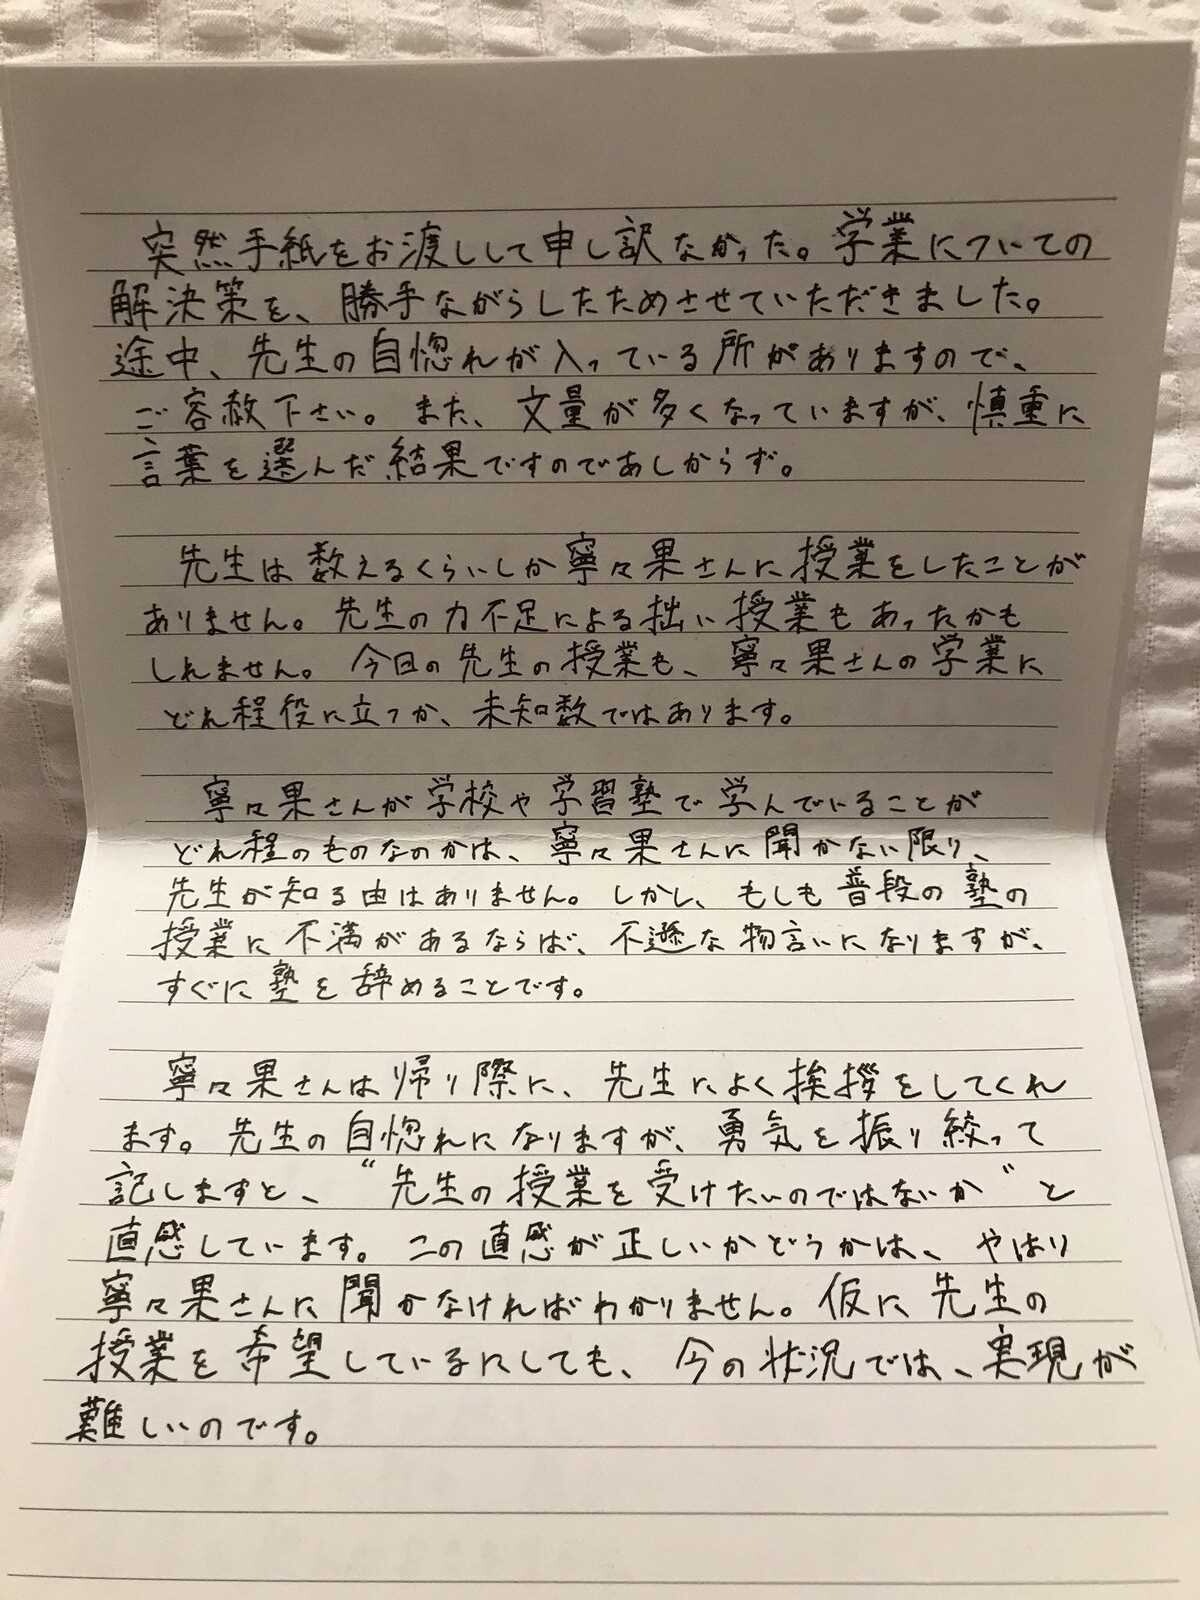 突然手紙をお渡しして申し訳なかった。学業についての
解決策を、勝手ながらしたためさせていただきました。
途中、先生の自惚れが入っている所がありますので、
ご容赦下さい。また、文量が多くなっていますが、慎重に
言葉を選んだ結果ですのであしからず。
先生は数えるくらいしか寧々果さんに授業をしたことが
ありません。先生の力不足による拙い授業もあったかも
しれません。今日の先生の授業も、寧々果さんの学業に
どれ程役に立つか、未知数ではあります。
寧々果さんが学校や学習塾で学んでいることが
どれ程のものなのかは、寧々果さんに聞かない限り、
先生が知る由はありません。しかし、もしも普段の塾の
授業に不満があるならば、不遜な物言いになりますが、
すぐに塾を辞めることです。
寧々果さんは帰り際に、先生によく挨拶をしてくれ
ます。先生の自惚れになりますが、勇気を振り絞って
記しますと、“先生の授業を受けたいのではないか”と
直感しています。この直感が正しいかどうかは、やはり
寧々果さんに聞かなければわかりません。仮に先生の
授業を希望しているにしても、今の状況では、実現が
難しいのです。